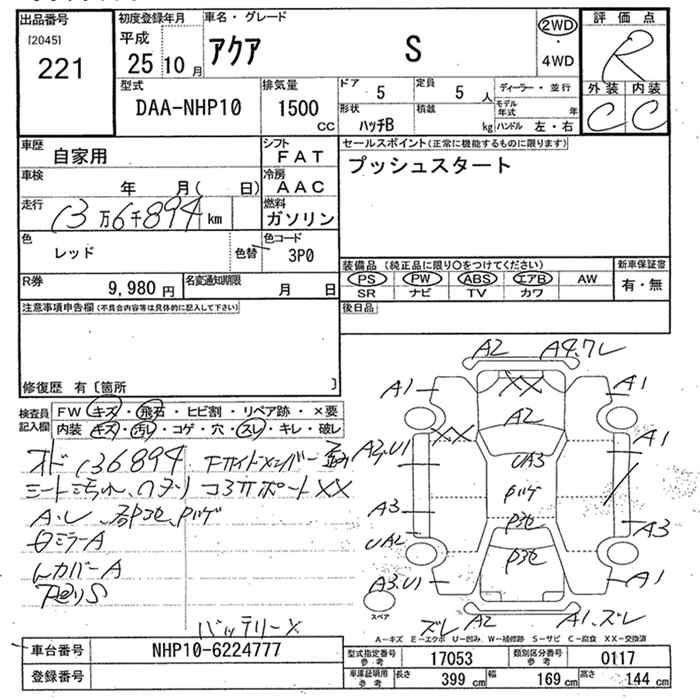 出品番号
[2045]
221
初度登録年月
平成
25 10月
車名・グレード
アクア S
2WD
・
4WD
評価点
R
外装 内装
C C
型式
DAA-NHP10
排気量
1500
CC
ドア
5
定員
5 人
形状
ハッチB
積載
kg
ディーラー・並行
モデル年式 年
ハンドル 左・右
車歴
自家用
シフト
FAT
車検
年 月( 日)
冷房
AAC
走行
13万6千894km
燃料
ガソリン
色
レッド
色替
色コード
3P0
R券
9,980円
名変通知期限
月 日
セールスポイント(正常に機能するものに限ります)
プッシュスタート
装備品(純正品に限り〇をつけてください)
PS PW ABS エアB AW
SR ナビ TV カワ
新車保証書
有・無
後日品
注意事項申告欄(不具合内容等は具体的に記入して下さい)
修復歴 有〔箇所 〕
検査員記入欄
FW キズ・飛石・ヒビ割・リペア跡・×要
内装 キズ・汚レ・コゲ・穴・スレ・キレ・破レ
オド 136894
シート汚れ、ハヌリ コアサポートXX
A・レ
ロミラーA
LカバーA
バッテリーX
A2 A4.7レ
A1 XX A1
A2
XX A1
A2.U1 UA3
A3
A3
UA2
A3.U1 A1
スペア
ズレ A2 A1.ズレ
A-キズ E-エクボ U-凹み W-補修跡 S-サビ C-腐食 XX-交換済
車台番号
NHP10-6224777
登録番号
型式指定番号
参考
17053
類別区分番号
参考
0117
車庫証明用
参考
長さ
399 cm
幅
169 cm
高さ
144 cm